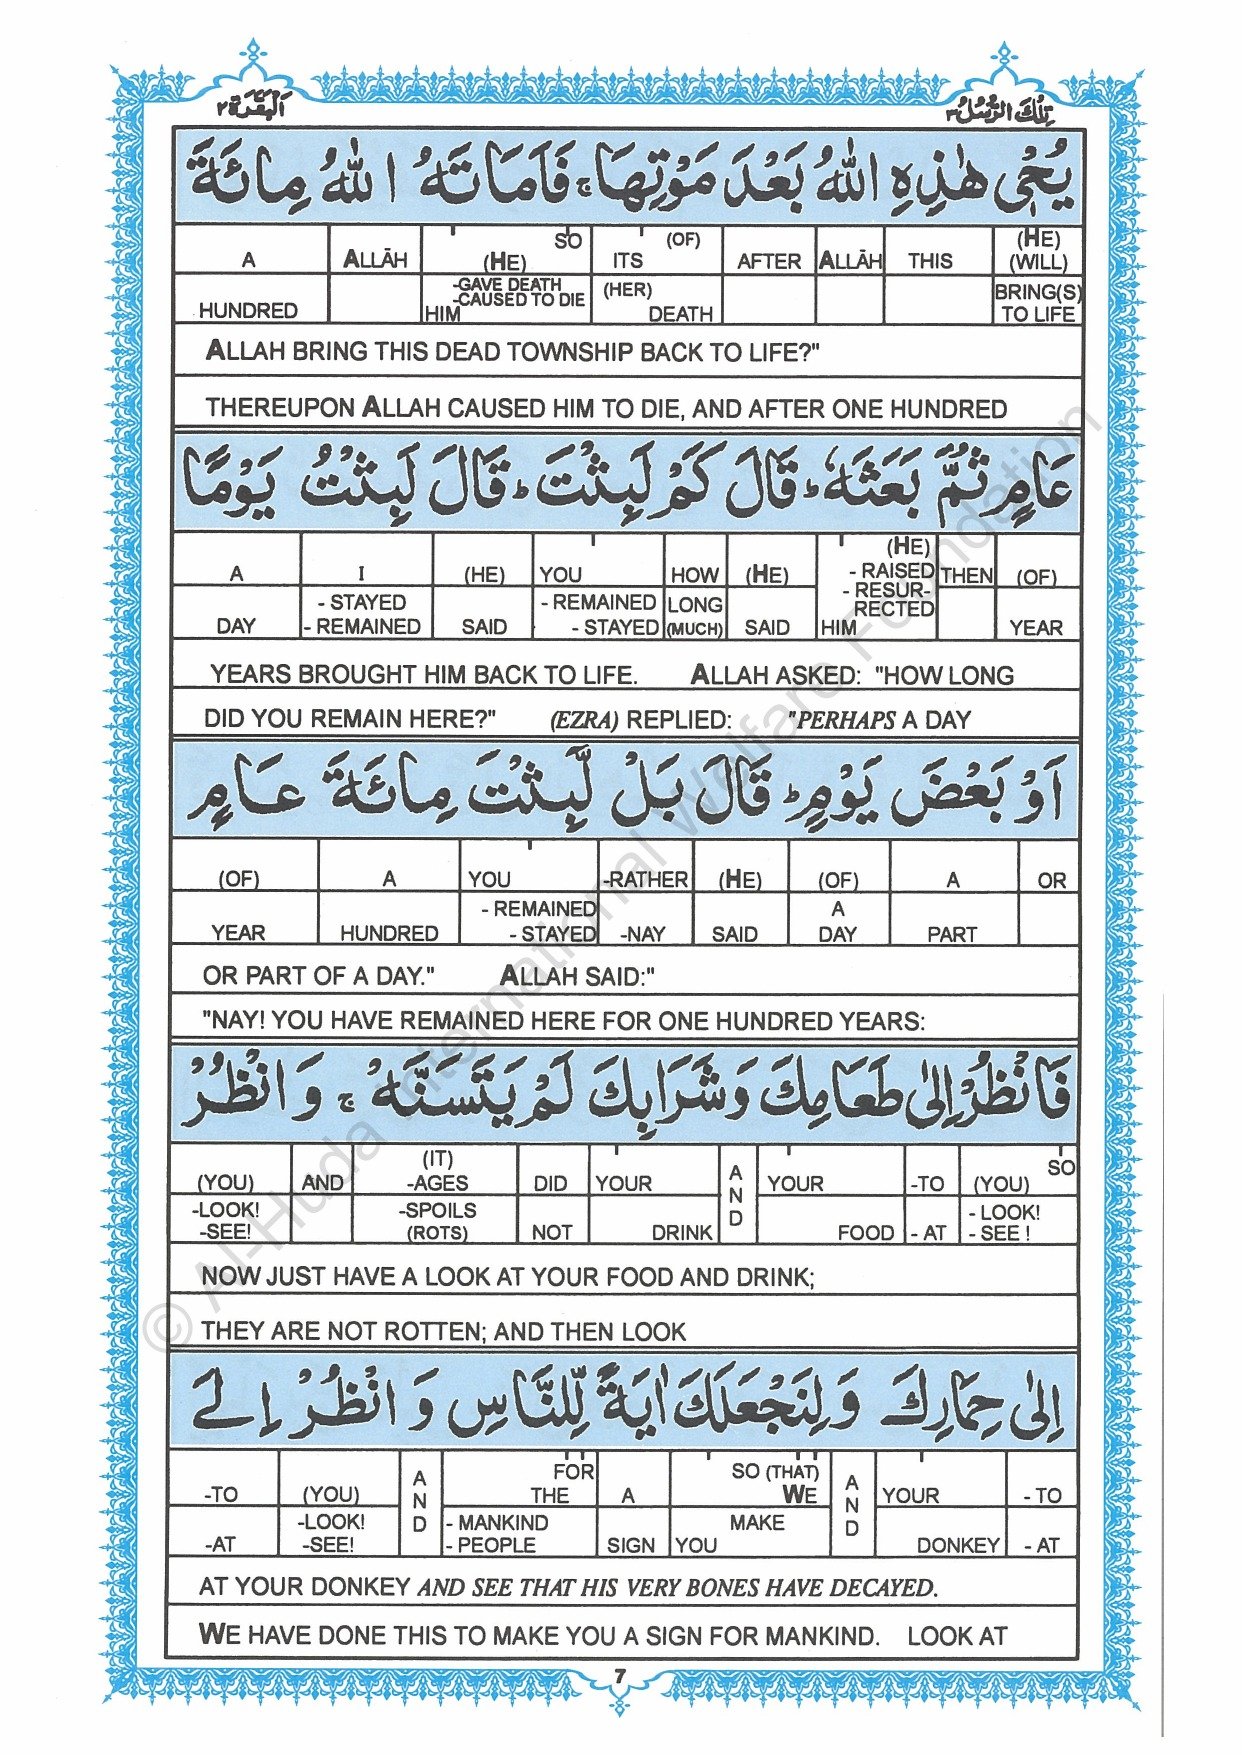 تِلْكَ الرُّسُلُ ٣
اَلْبَقَرَة ٢
يُحْيٖ هٰذِهِ اللّٰهُ بَعْدَ مَوْتِهَا ۚ فَاَمَاتَهُ اللّٰهُ مِائَةَ
A ALLĀH (HE) SO ITS (OF) AFTER ALLĀH THIS (HE) (WILL)
HUNDRED HIM -GAVE DEATH -CAUSED TO DIE (HER) DEATH BRING(S) TO LIFE
ALLAH BRING THIS DEAD TOWNSHIP BACK TO LIFE?"
THEREUPON ALLAH CAUSED HIM TO DIE, AND AFTER ONE HUNDRED
عَامٍ ثُمَّ بَعَثَهٗ ؕ قَالَ كَمْ لَبِثْتَ ؕ قَالَ لَبِثْتُ يَوْمًا
A I (HE) YOU HOW (HE) (HE) - RAISED THEN (OF)
DAY - STAYED - REMAINED SAID - REMAINED - STAYED LONG (MUCH) SAID HIM - RESUR-RECTED YEAR
YEARS BROUGHT HIM BACK TO LIFE. ALLAH ASKED: "HOW LONG
DID YOU REMAIN HERE?" (EZRA) REPLIED: "PERHAPS A DAY
اَوْ بَعْضَ يَوْمٍ ؕ قَالَ بَلْ لَّبِثْتَ مِائَةَ عَامٍ
(OF) A YOU -RATHER (HE) (OF) A OR
YEAR HUNDRED - REMAINED - STAYED -NAY SAID A DAY PART
OR PART OF A DAY." ALLAH SAID:"
"NAY! YOU HAVE REMAINED HERE FOR ONE HUNDRED YEARS:
فَانْظُرْ اِلٰى طَعَامِكَ وَشَرَابِكَ لَمْ يَتَسَنَّهْ ۚ وَ انْظُرْ
(YOU) AND (IT) -AGES DID YOUR AND YOUR -TO (YOU) SO
-LOOK! -SEE! -SPOILS (ROTS) NOT DRINK FOOD - AT - LOOK! - SEE !
NOW JUST HAVE A LOOK AT YOUR FOOD AND DRINK;
THEY ARE NOT ROTTEN; AND THEN LOOK
اِلٰى حِمَارِكَ وَلِنَجْعَلَكَ اٰيَةً لِّلنَّاسِ وَ انْظُرْ اِلَى
-TO (YOU) AND FOR THE A SO (THAT) WE AND YOUR - TO
-AT -LOOK! -SEE! - MANKIND - PEOPLE SIGN YOU MAKE DONKEY - AT
AT YOUR DONKEY AND SEE THAT HIS VERY BONES HAVE DECAYED.
WE HAVE DONE THIS TO MAKE YOU A SIGN FOR MANKIND. LOOK AT
7
© Al-Huda International Welfare Foundation